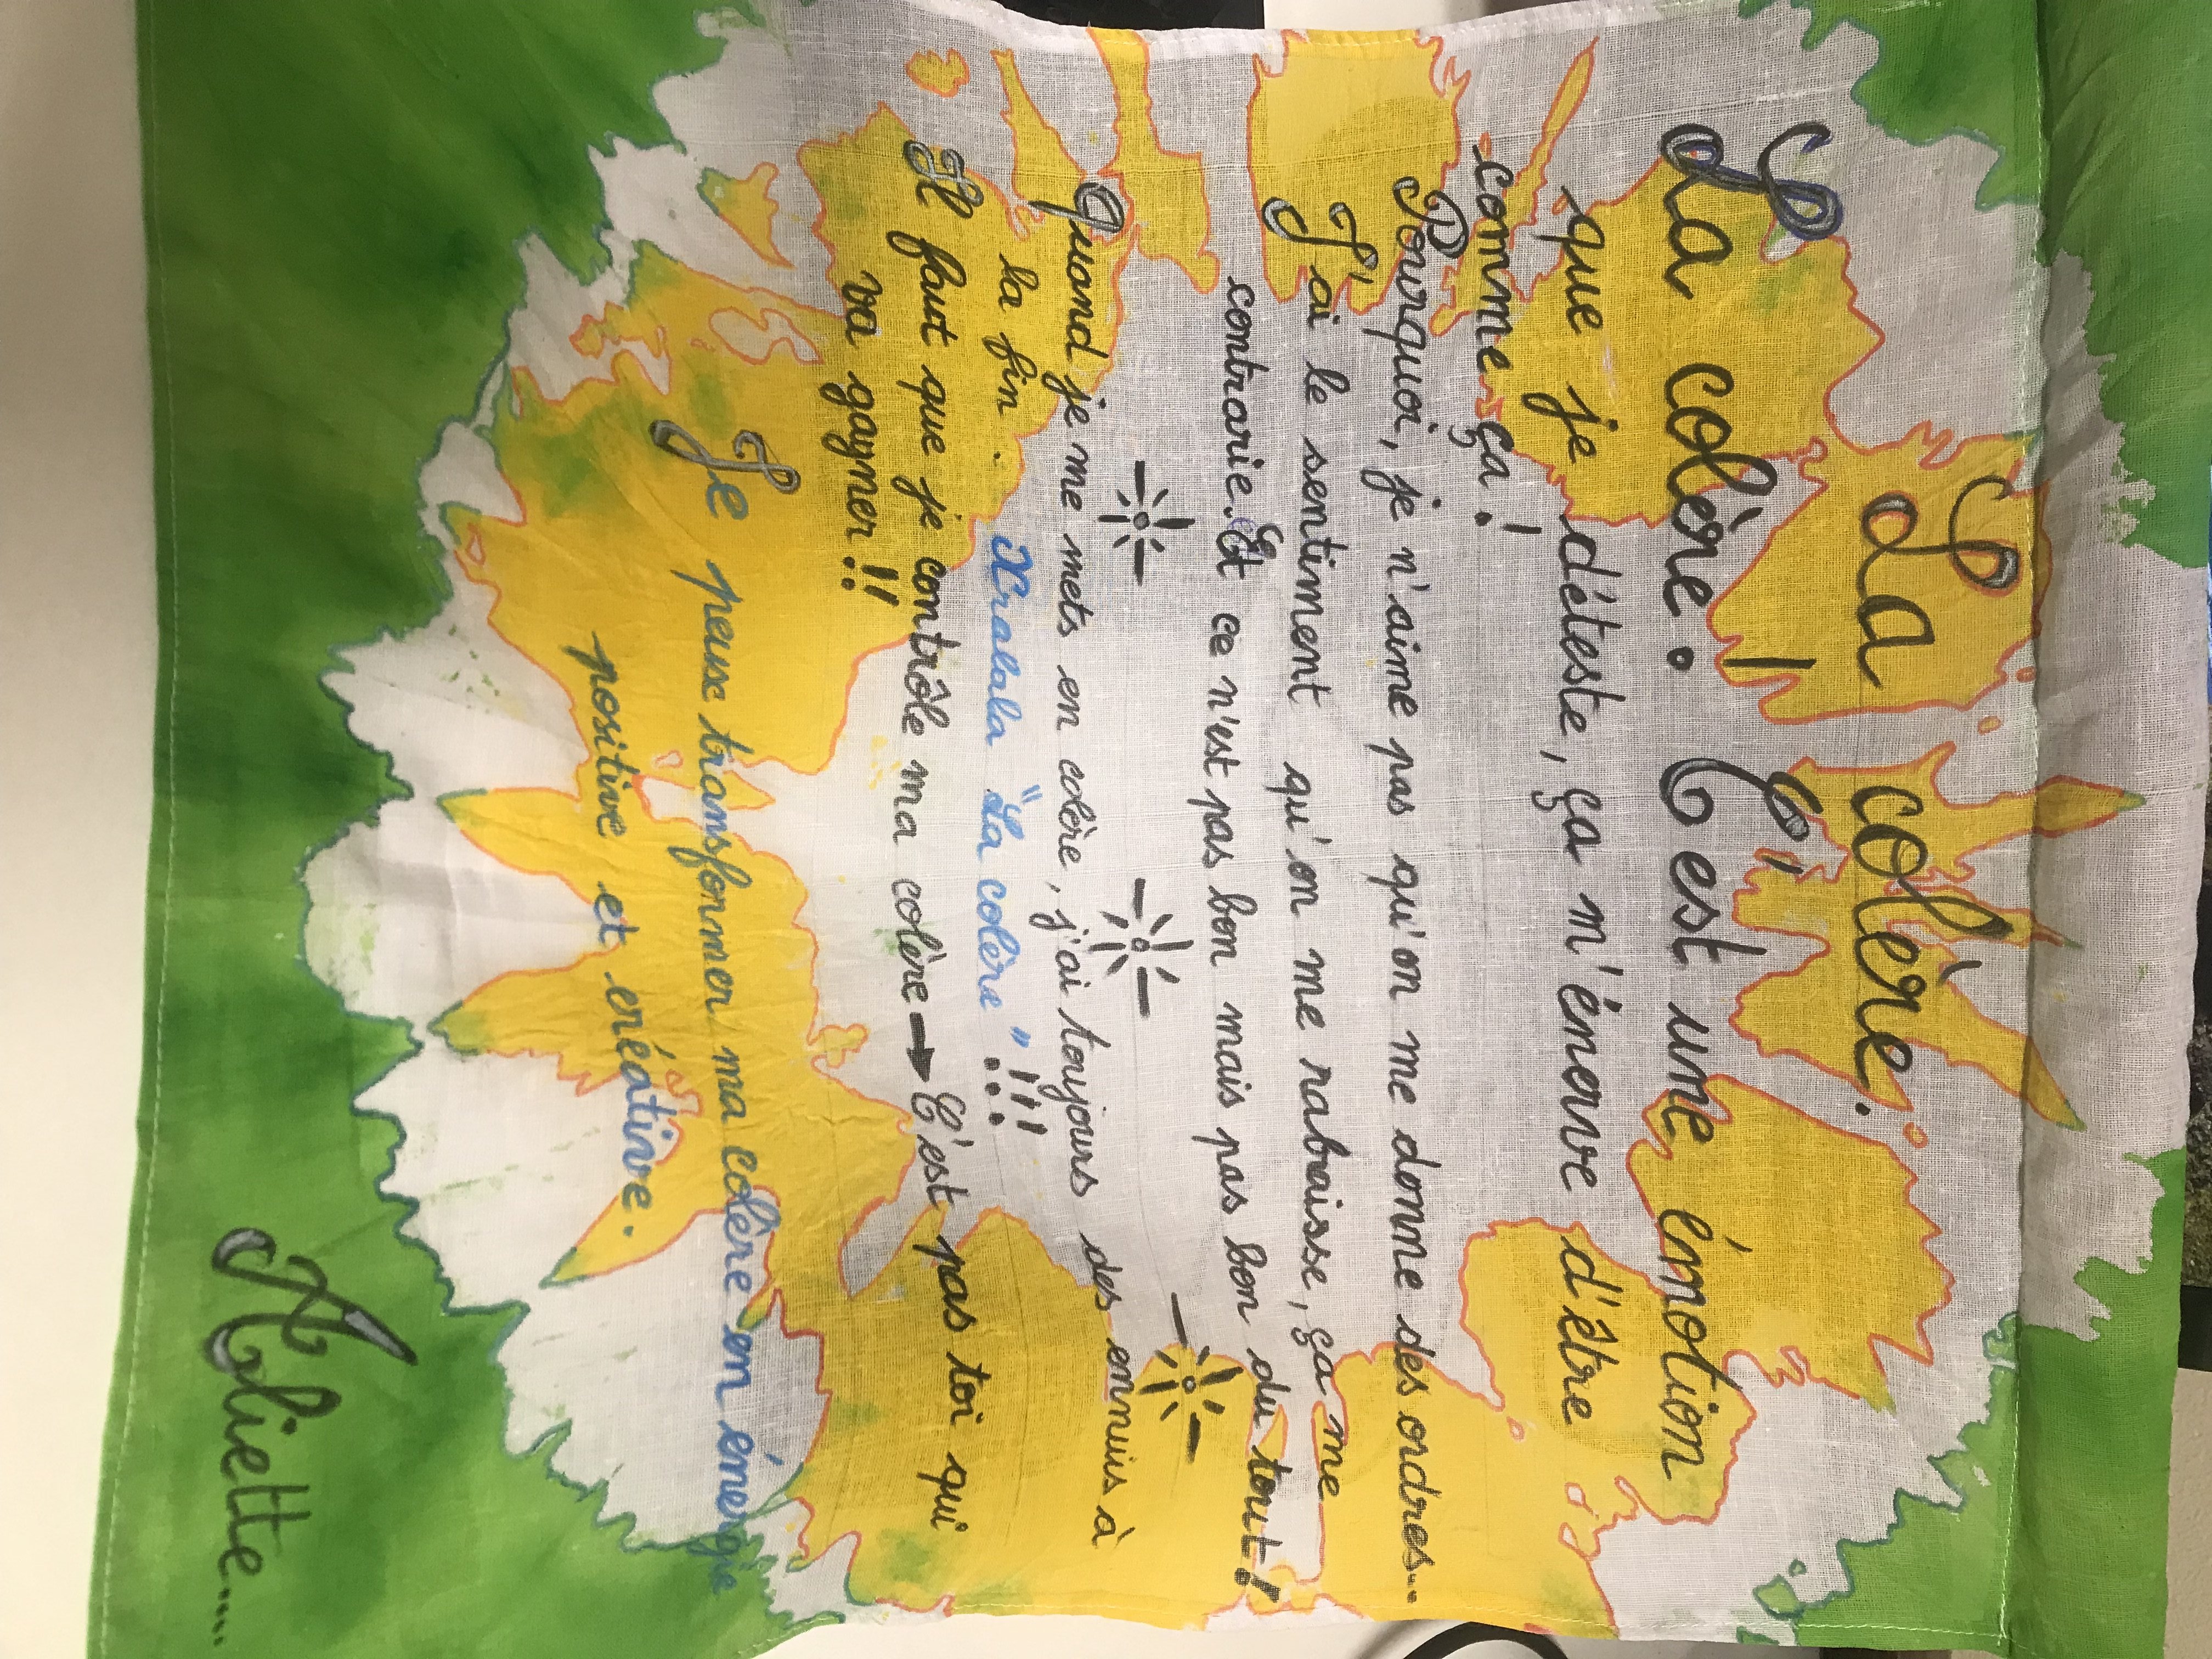 La colère.
La colère ! C'est une émotion
que je déteste, ça m'énerve d'être
comme ça !
Pourquoi, je n'aime pas qu'on me donne des ordres...
J'ai le sentiment qu'on me rabaisse, ça me
contrarie. Et ce n'est pas bon mais pas bon du tout !
Quand je me mets en colère, j'ai toujours des ennuis à
la fin. Kralala "La colère" !!!
Il faut que je contrôle ma colère → C'est pas toi qui
va gagner !!
Je peux transformer ma colère en énergie
positive et créative.
Aliette....